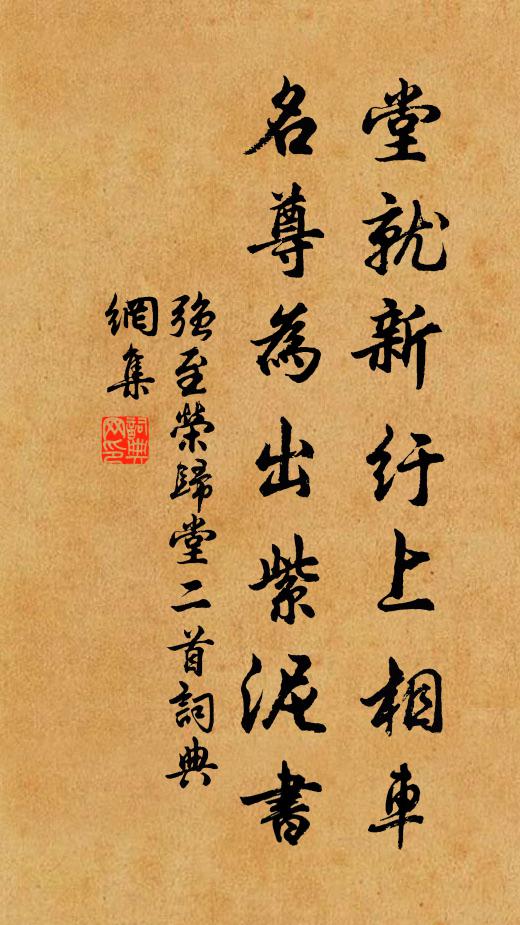 堂就新行上相車
名尊為出紫泥書
強至榮歸堂二首詞典
網集
詞典
网印